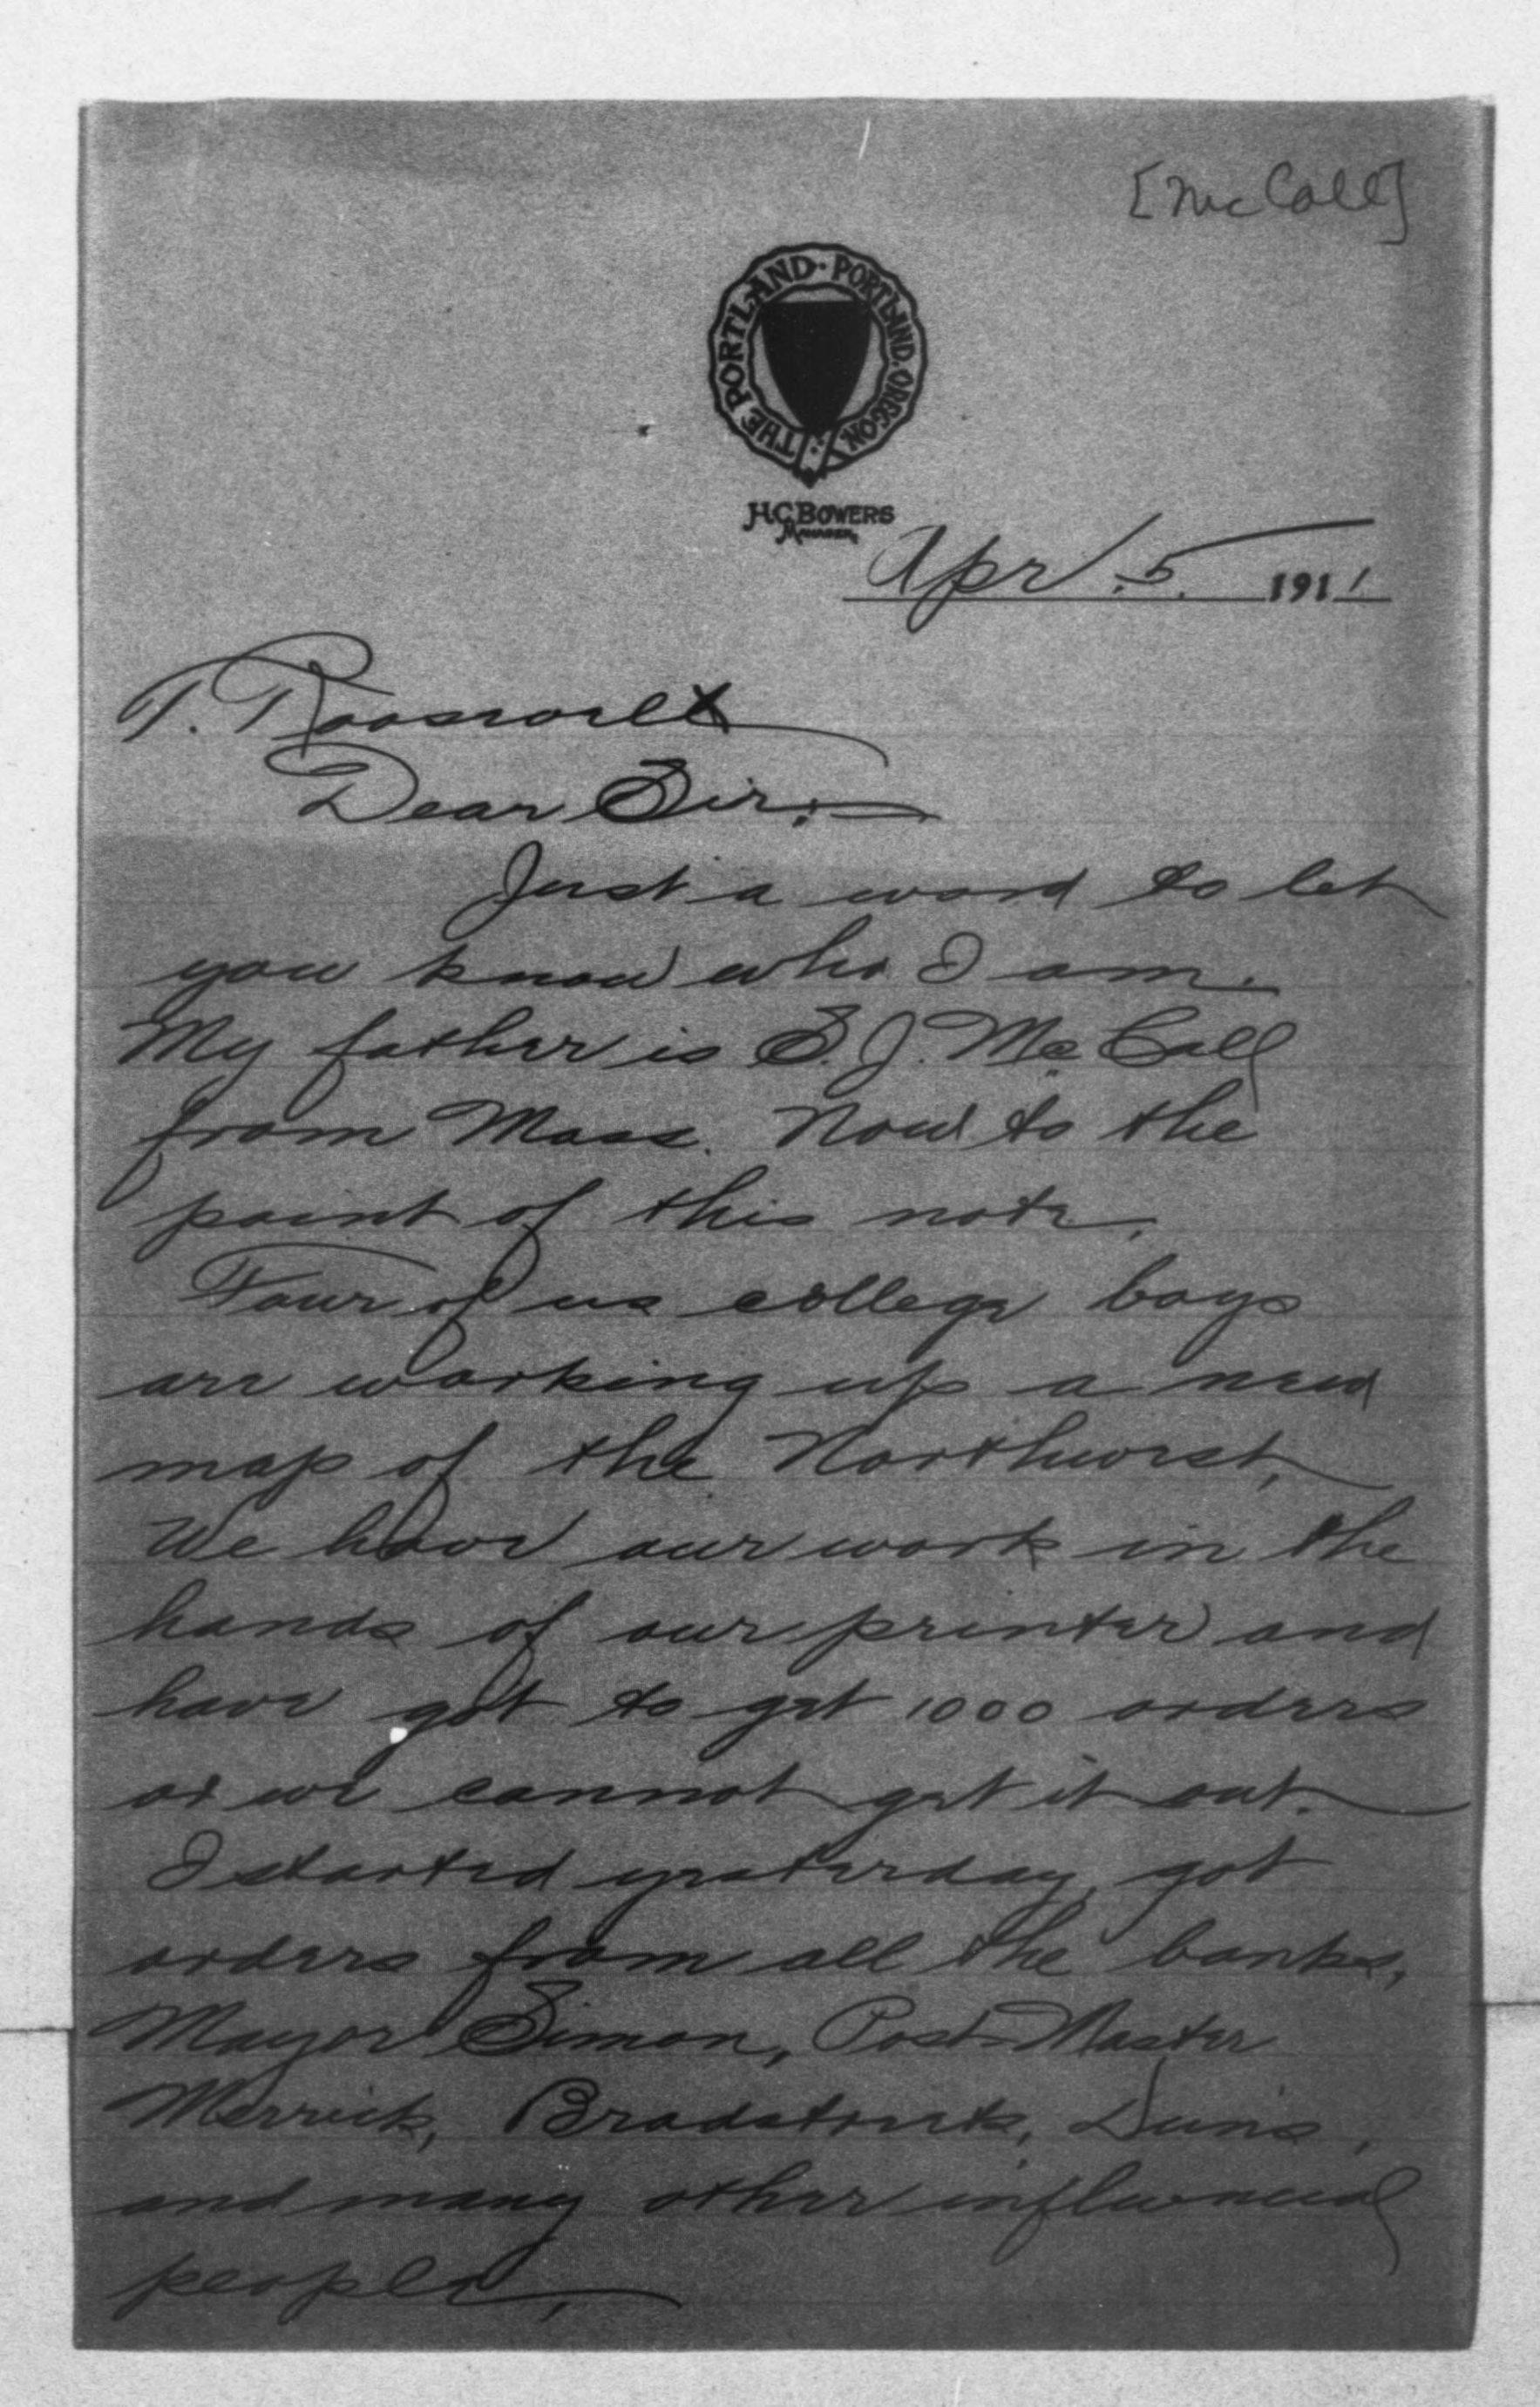 [McCall]
THE PORTLAND · PORTLAND, OREGON
H.C. BOWERS
Manager
Apr. 5. 1911
T. Roosevelt
Dear Sir:—
Just a word to let
you know who I am.
My father is S. J. McCall
from Mass. Now to the
point of this note.
Four of us college boys
are working up a new
map of the Northwest,
We have our work in the
hands of our printer and
have got to get 1000 orders
or we cannot get it out.
I started yesterday, got
orders from all the banks,
Mayor Simon, Post-Master
Merrick, Bradstreets, Duns,
and many other influencial
people,